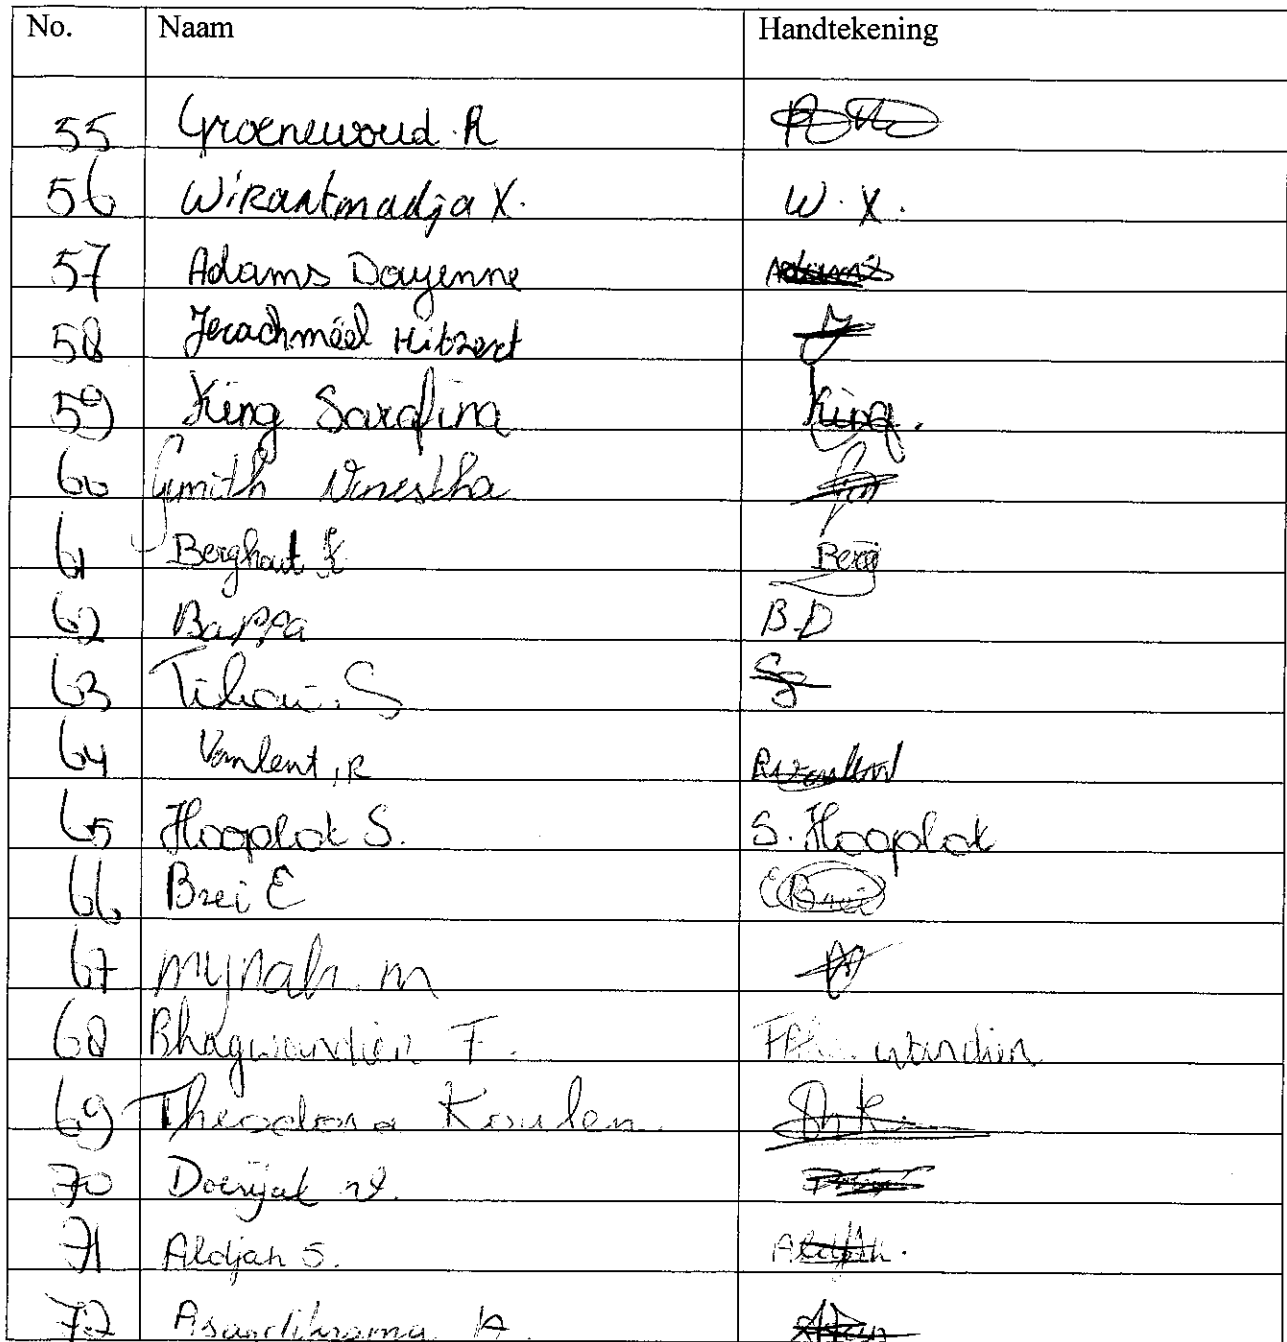 No. Naam Handtekening
55 Groenewoud R
56 Wirantmadja X. W. X.
57 Adams Dayenne Adams
58 Jerachmeël Hibzert
59 King Sarafina King.
60 Vinestha
61 Berghout Berg
62 Bappa B.D
63 S
64 Vanlent, R
65 Hooplot S. S. Hooplot
66 Brei E E Brei
67 mynah m
68 Bhagwandien F.
69 Theodora Koulen
70
71 Aldjah S. Aldjah.
72 A.